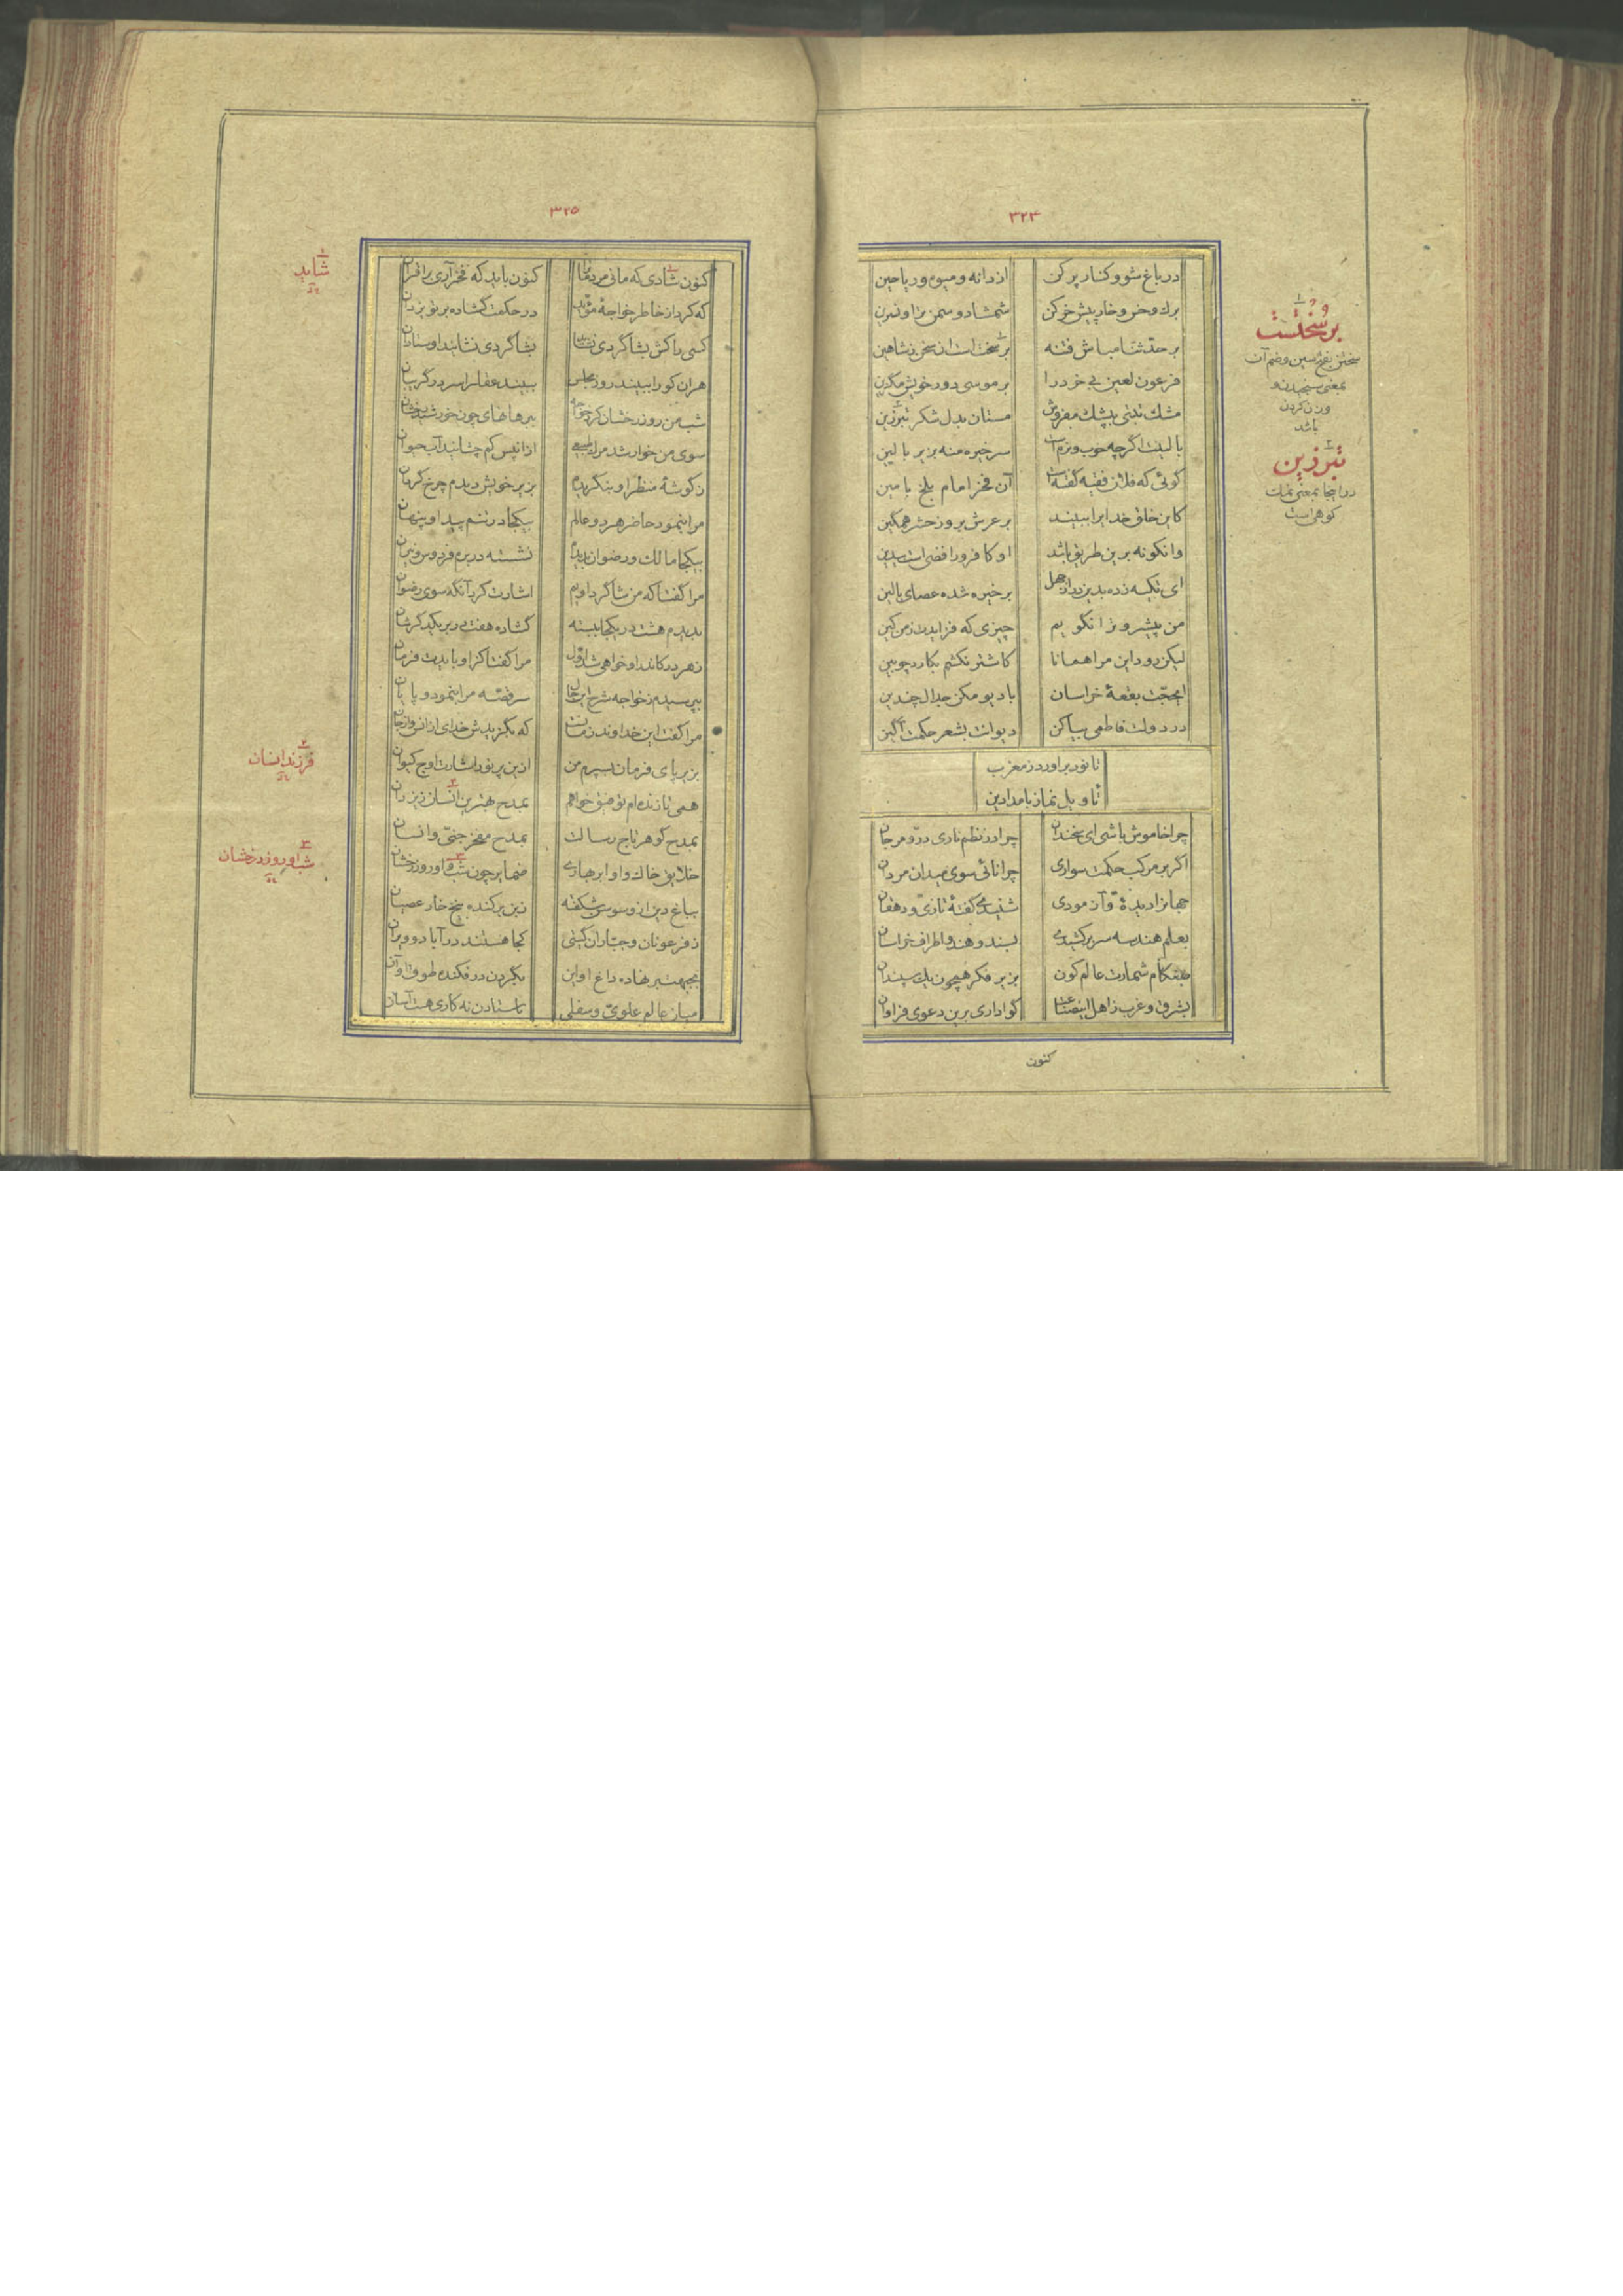 ۳۲۴
در باغ شو و کنار پر کن از دانه و میوه و ریاحین
برک و خس و خار پیش خر کن شمشاد و سمن ترا و نسرین
بر حدثنا مباش فتنه برسخت است آن سخن بشاهین
فرعون لعین بی خرد را بر موسی دور خویش مگزین
مشک تبتی بپشک مفروش مستان بدل شکر تبرزین
بالینت اگرچه خوب و نرم است سر خیره منه بزیر بالین
گوئی که فلان فقیه گفته است آن فخر امام بلخ بامین
کاین خلق خدایرا ببینند بر عرش بروز حشر همگین
وانکو نه برین طریق باشد او کافر و رافضی است بیدین
ای تکیه زده بدین در از جهل بر خیره شده عصای بالین
من پیشرو ترا نگویم چیزی که فزایدت ز من کین
لیکن رود این مرا همانا کاشتر نکشم بکارد چوبین
ایحجت بقعهٔ خراسان با دیو مکن جدال چندین
در دولت فاطمی بیاکن دیوانت بشعر حکمت آکین
تا نور براورد ز مغرب
تاویل نماز بامدادین
چرا خاموش باشی ای سخندان چرا در نظم ناری در و مرجان
اگر بر مرکب حکمت سواری چرا نائی سوی میدان مردان
جهانرا دیدهٔ و آزمودی شنیدی گفتهٔ تازی و دهقان
بعلم هندسه سر برکشیدی بسند و هند و اطراف خراسان
بزیر فکر همچون یک سپندان
بشرق و غرب ز اهل گوا داری برین دعوی فراوان
کنون
۱
برسُختَست
سختن بفتح سین و ضم آن
بمعنی سنجیدن و
وزن کردن
باشد
۲
تبرزین
در اینجا بمعنی نبات
کوهی است
۳۲۵
کنون شادی که مانی کنون باید که فخر آری بر اقران
که کرد از خاطر خواجهٔ مؤید در حکمت گشاده بر تو یزدان
کسی را کش بشاگردی بشاگردی نشاند او
هران کو را ببیند روز مجلس ببیند عقل را سر در گریبان
شب من روز رخشان کرد خواجه ببرهانهای چون خورشید رخشان
سوی من خوار شد مرگ طبیعی ازانپس کم چشانید آب حیوان
ز گوشهٔ منظر او بنگریدم بزیر خویش دیدم چرخ گردان
مرا بنمود حاضر هر دو عالم بیکجا در تنم پیدا و پنهان
بیکجا مالک و رضوان بدیدم نشسته در بر فردوس و نیران
مرا گفتا که من شاگرد اویم اشارت کرد آنگه سوی رضوان
بدیدم هشت در یکجا ببسته گشاده هفت
ز هر در کاندر او خواهی شد اول مرا گفتا کز او بایدت فرمان
بپرسیدم ز خواجه شرح این حال سر قصه مرا بنمود و پایان
مرا گفت این خداوند زمانست که بگزیدش خدای از انس و از جان
بزیر پای فرمان بسپرم من ازین پر نور اشارت اوج کیوان
همی تا زنده ام توفیق خواهم بمدح بهترین انسان ز یزدان
بمدح گوهر تاج رسالت بمدح مفخر جنی و انسان
خلایق خاک و او ابر بهاری ضمایر چون شب و او روز رخشان
بباغ دین ازو سوسن شکفته زبن برکنده بیخ خار عصیان
ز فرعونان و جباران گیتی کجا هستند در آباد و ویران
بجبهت بر نهاده داغ او این بگردن در فکنده طوق او آن
میان عالم علوی و سفلی نه کاری هست آسان
۱
شاید
۲
فرزند انسان
۳
شب او روز رخشان